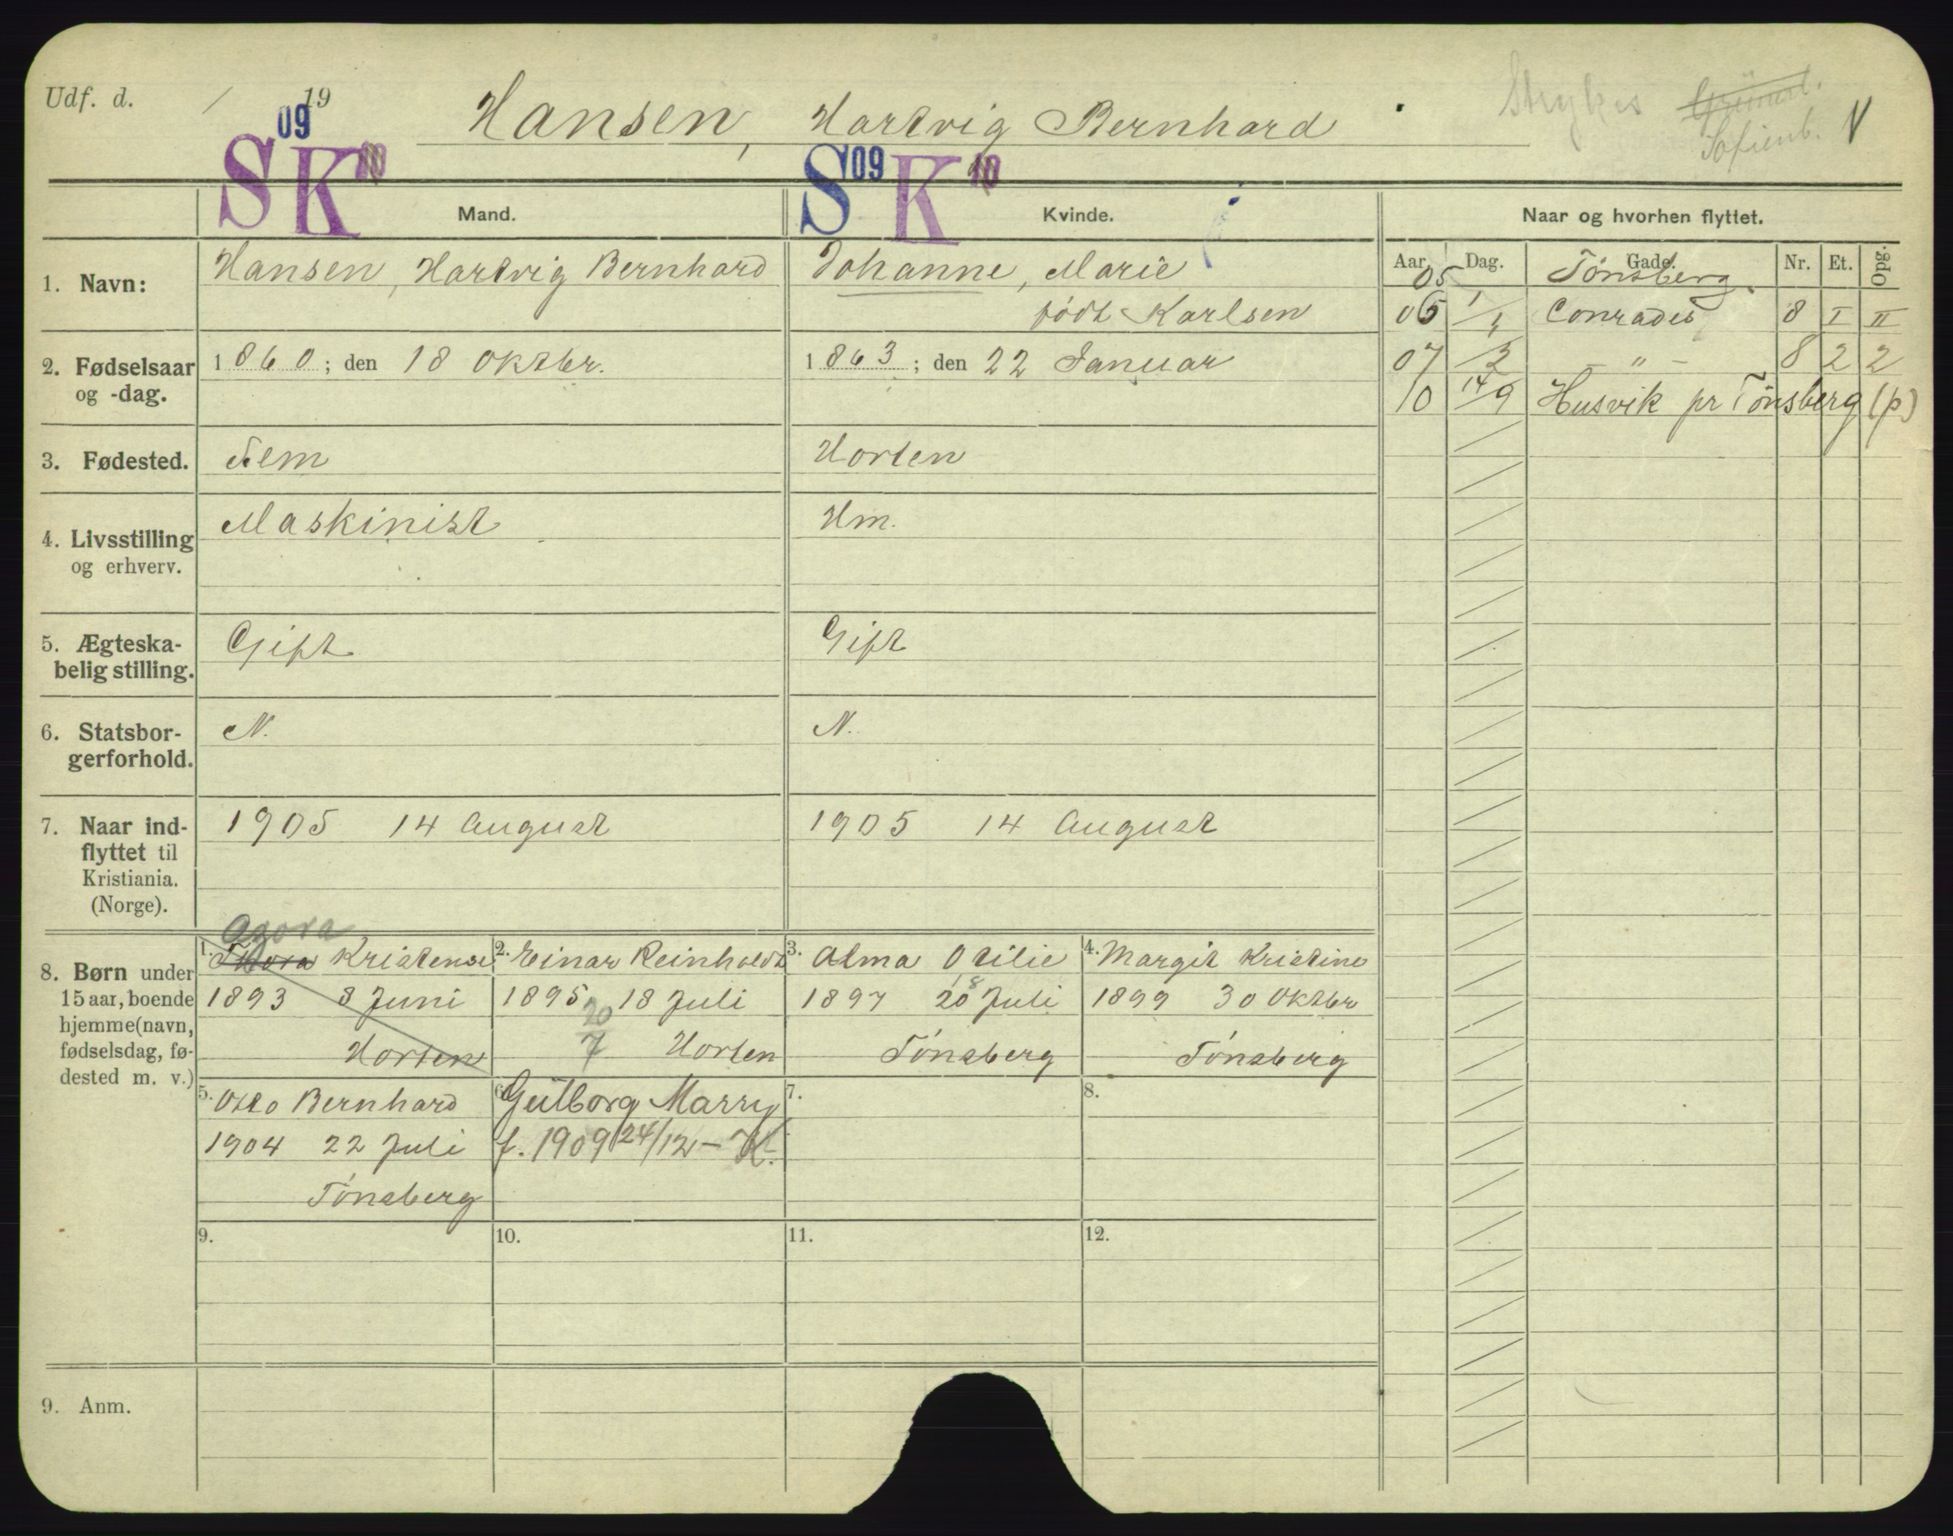 Udf. d. / 19
Hansen, Hartvig Bernhard
Strykes Grünerl.
Sofienb. V
09
S K 10
S 09 K 10
Mand.
Kvinde.
Naar og hvorhen flyttet.
Aar. Dag. Gade. Nr. Et. Opg.
05 Tønsberg.
05 1/1 Conradis 8 I II
07 /2 — " — 8 2 2
10 14/9 Husvik pr Tønsberg (p)
1. Navn: Hansen, Hartvig Bernhard
Johanne, Marie
født Karlsen
2. Fødselsaar
og -dag.
1860; den 18 Oktbr.
1863; den 22 Januar
3. Fødested. Sem
Horten
4. Livsstilling
og erhverv.
Maskinist
Hm.
5. Ægteska-
belig stilling.
Gift
Gift
6. Statsbor-
gerforhold.
N.
N.
7. Naar ind-
flyttet til
Kristiania.
(Norge).
1905 14 August
1905 14 August
8. Børn under
15 aar, boende
hjemme (navn,
fødselsdag, fø-
dested m. v.)
Agora
1. Thora Kristense
1893 8 Juni
Horten
2. Einar Reinholdt
1895 18 Juli
20/7 Horten
3. Alma Otilie
1897 20 8 Juli
Tønsberg
4. Margit Kristine
1899 30 Oktbr
Tønsberg
5. Otto Bernhard
1904 22 Juli
Tønsberg
6. Gulborg Marry
f. 1909 24/12 — K.
7.
8.
9.
10.
11.
12.
9. Anm.